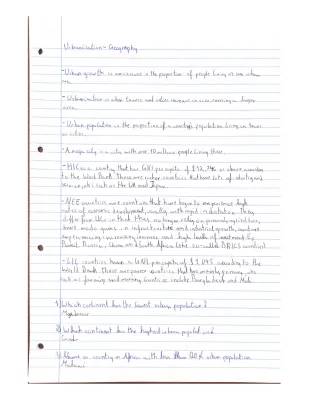 Urbanisation - Geography
- Urban growth is an increase in the proportion of people living in urban
- Urbanisation is when towns and cities increase in size covering a larger
area.
- Urban population is the proportion of a country's population living in towns
or cities.
- A mega city is a city with over 10 million people living there.
- HIC is a country that has GNI per capita of $12,746 or above according
to the World Bank. These are richer countries that have lots of
services, etc such as the UK and Japan.
- NEE countries are countries that have begun to experience high
rates of economic development, usually with rapid industrialisation. They
differ from LICs in that they no longer rely on primarily agriculture,
have made gains in infrastructure and industrial growth, and are
experiencing increasing incomes and high levels of investment Eg
Brazil, Russia, China and South Africa (the so-called BRICS countries)
- LIC countries have a GNI per capita of $1,045 according to the
World Bank. These are poorer countries that have mainly primary
such as farming and mining
examples include Bangladesh and Mali
1) Which continent has the lowest urban population?
2) Which continent has the highest urban population?
3) Name a country in Africa with less than 20% urban population